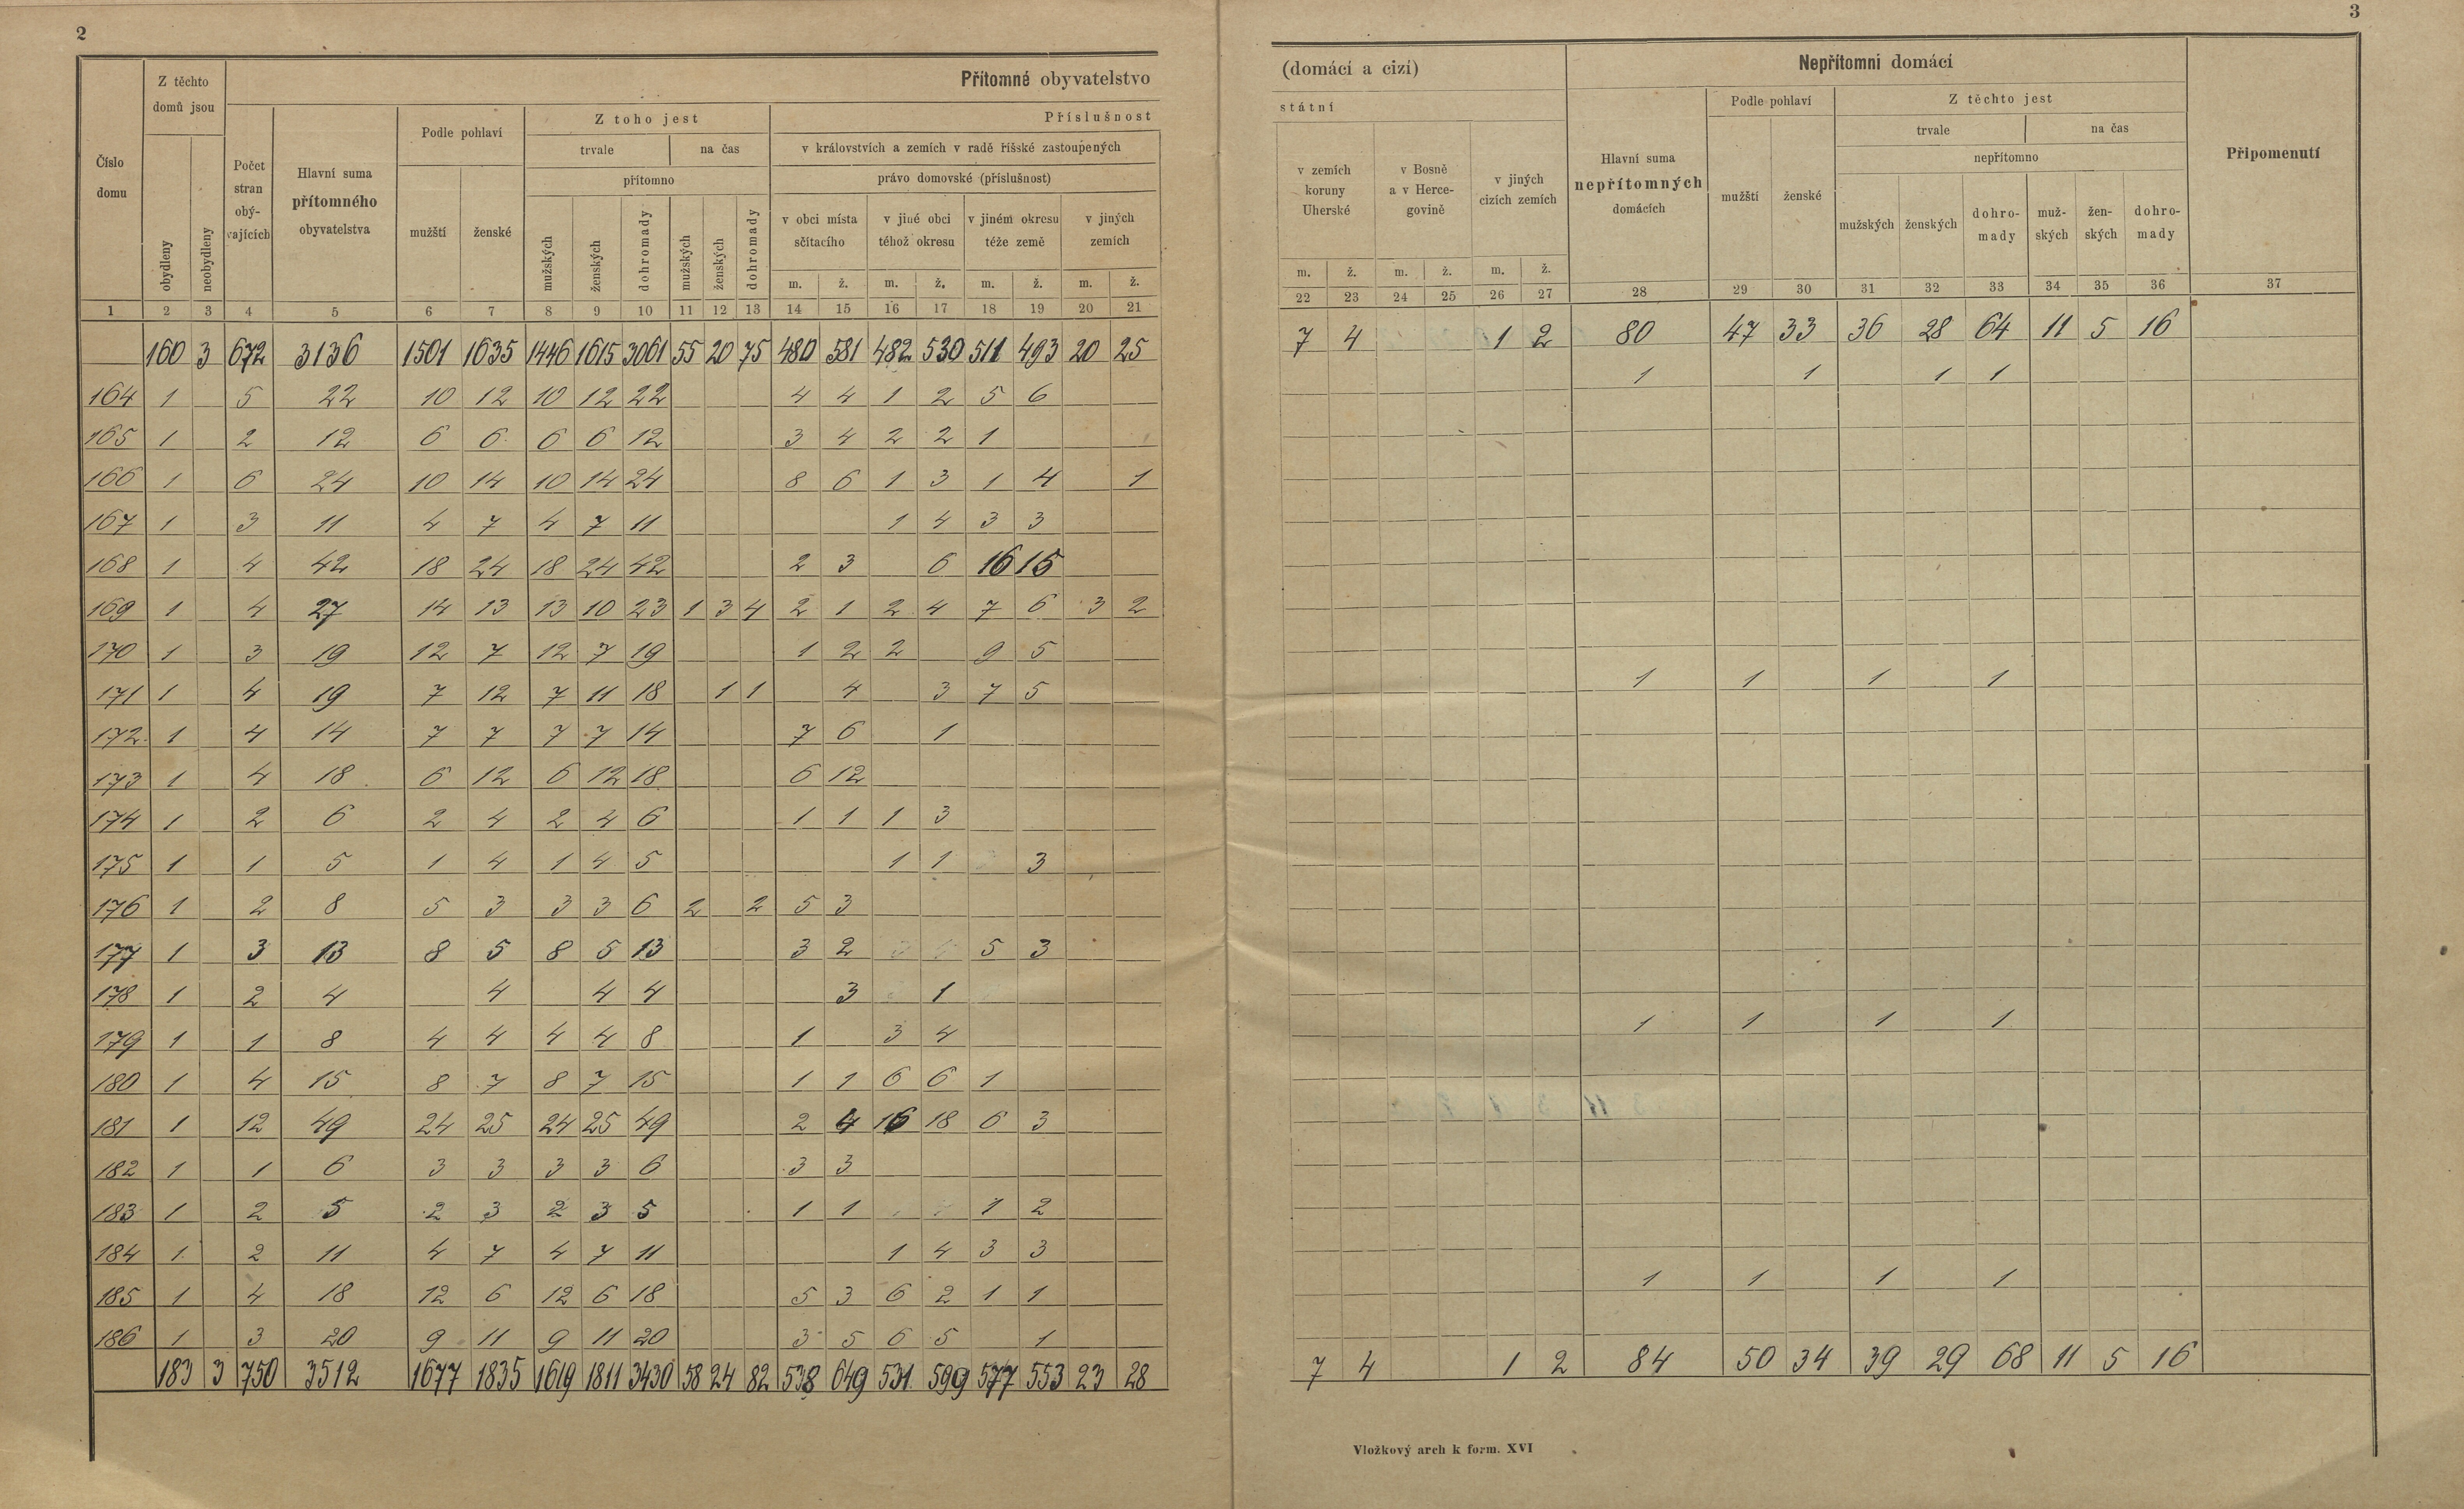 2
3
Přítomné obyvatelstvo
(domácí a cizí)
Nepřítomní domácí
Připomenutí
Číslo domu
Z těchto domů jsou
obydleny
neobydleny
Počet stran obývajících
Hlavní suma přítomného obyvatelstva
Podle pohlaví
mužští
ženské
Z toho jest
trvale
na čas
přítomno
mužských
ženských
dohromady
mužských
ženských
dohromady
Příslušnost
státní
v královstvích a zemích v radě říšské zastoupených
právo domovské (příslušnost)
v obci místa sčítacího
v jiné obci téhož okresu
v jiném okresu téže země
v jiných zemích
m. ž. m. ž. m. ž. m. ž.
v zemích koruny Uherské
v Bosně a v Hercegovině
v jiných cizích zemích
m. ž. m. ž. m. ž.
Hlavní suma nepřítomných domácích
Podle pohlaví
mužští
ženské
Z těchto jest
trvale
na čas
nepřítomno
mužských
ženských
dohromady
mužských
ženských
dohromady
1 2 3 4 5 6 7 8 9 10 11 12 13 14 15 16 17 18 19 20 21 22 23 24 25 26 27 28 29 30 31 32 33 34 35 36 37
160 3 672 3136 1501 1635 1446 1615 3061 55 20 75 480 581 482 530 511 493 20 25 7 4 1 2 80 47 33 36 28 64 11 5 16
164 1 5 22 10 12 10 12 22 4 4 1 2 5 6 1 1 1 1
165 1 2 12 6 6 6 6 12 3 4 2 2 1
166 1 6 24 10 14 10 14 24 8 6 1 3 1 4 1
167 1 3 11 4 7 4 7 11 1 4 3 3
168 1 4 42 18 24 18 24 42 2 3 6 16 15
169 1 4 27 14 13 13 10 23 1 3 4 2 1 2 4 7 6 3 2
170 1 3 19 12 7 12 7 19 1 2 2 9 5
171 1 4 19 7 12 7 11 18 1 1 4 3 7 5 1 1 1 1
172 1 4 14 7 7 7 7 14 7 6 1
173 1 4 18 6 12 6 12 18 6 12
174 1 2 6 2 4 2 4 6 1 1 1 3
175 1 1 5 1 4 1 4 5 1 1 3
176 1 2 8 5 3 3 3 6 2 2 5 3
177 1 3 13 8 5 8 5 13 3 2 5 3
178 1 2 4 4 4 4 3 1
179 1 1 8 4 4 4 4 8 1 3 4 1 1 1 1
180 1 4 15 8 7 8 7 15 1 1 6 6 1
181 1 12 49 24 25 24 25 49 2 4 16 18 6 3
182 1 1 6 3 3 3 3 6 3 3
183 1 2 5 2 3 2 3 5 1 1 1 2
184 1 2 11 4 7 4 7 11 1 4 3 3
185 1 4 18 12 6 12 6 18 5 3 6 2 1 1 1 1 1 1
186 1 3 20 9 11 9 11 20 3 5 6 5 1
183 3 750 3512 1677 1835 1619 1811 3430 58 24 82 538 649 531 599 577 553 23 28 7 4 1 2 84 50 34 39 29 68 11 5 16
Vložkový arch k form. XVI